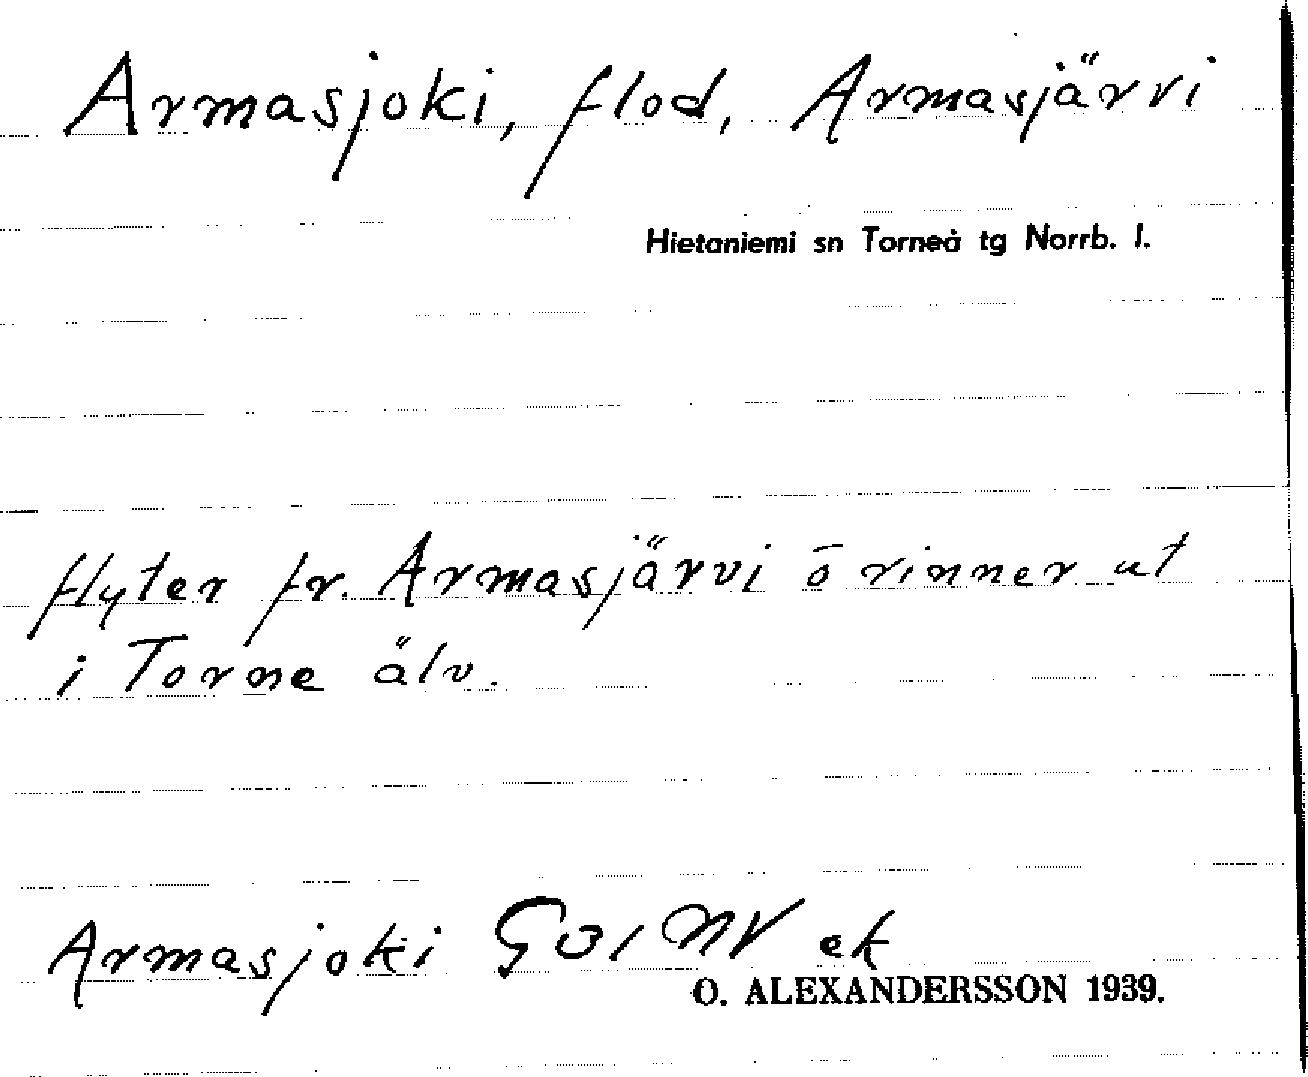 Armasjoki, flod, Armasjärvi
Hietaniemi sn Torneå tg Norrb. l.
flyter fr. Armasjärvi o rinner ut
i Torne älv.
Armasjoki NV ek
O. ALEXANDERSSON 1939.